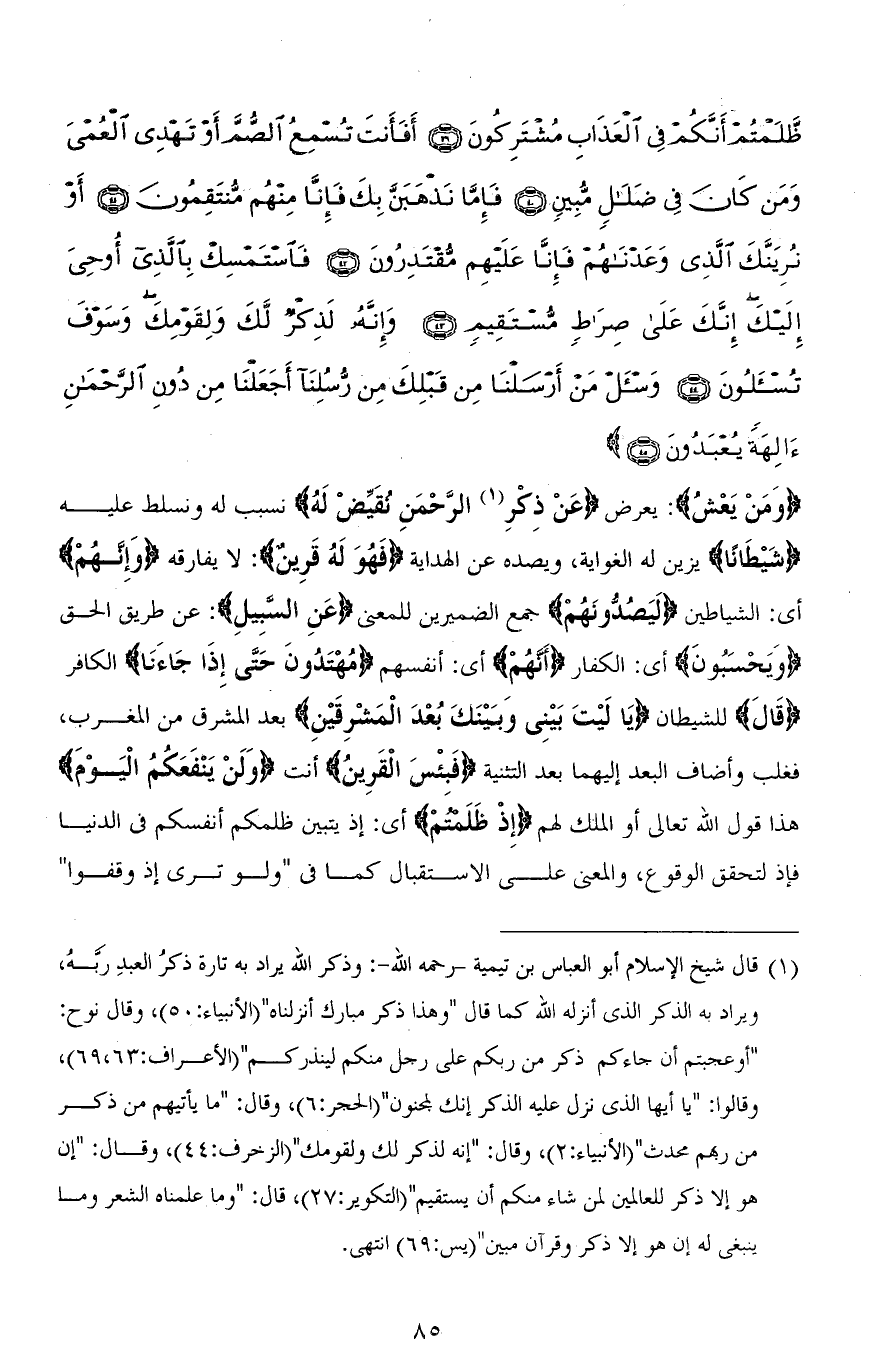 ظَّلَمْتُمْ أَنَّكُمْ فِى ٱلْعَذَابِ مُشْتَرِكُونَ ٣٩ أَفَأَنتَ تُسْمِعُ ٱلصُّمَّ أَوْ تَهْدِى ٱلْعُمْىَ
وَمَن كَانَ فِى ضَلَـٰلٍ مُّبِينٍ ٤٠ فَإِمَّا نَذْهَبَنَّ بِكَ فَإِنَّا مِنْهُم مُّنتَقِمُونَ ٤١ أَوْ
نُرِيَنَّكَ ٱلَّذِى وَعَدْنَـٰهُمْ فَإِنَّا عَلَيْهِم مُّقْتَدِرُونَ ٤٢ فَٱسْتَمْسِكْ بِٱلَّذِىٓ أُوحِىَ
إِلَيْكَ ۖ إِنَّكَ عَلَىٰ صِرَٰطٍ مُّسْتَقِيمٍ ٤٣ وَإِنَّهُۥ لَذِكْرٌ لَّكَ وَلِقَوْمِكَ ۖ وَسَوْفَ
تُسْـَٔلُونَ ٤٤ وَسْـَٔلْ مَنْ أَرْسَلْنَا مِن قَبْلِكَ مِن رُّسُلِنَآ أَجَعَلْنَا مِن دُونِ ٱلرَّحْمَـٰنِ
ءَالِهَةً يُعْبَدُونَ ٤٥﴾
﴿وَمَنْ يَعْشُ﴾: يعرض ﴿عَنْ ذِكْرِ(١) الرَّحْمَنِ نُقَيِّضْ لَهُ﴾ نسبب له ونسلط عليـــه
﴿شَيْطَانًا﴾ يزين له الغواية، ويصده عن الهداية ﴿فَهُوَ لَهُ قَرِينٌ﴾: لا يفارقه ﴿وَإِنَّــهُمْ﴾
أى: الشياطين ﴿لَيَصُدُّونَهُمْ﴾ جمع الضميرين للمعنى ﴿عَنِ السَّبِيلِ﴾: عن طريق الحـق
﴿وَيَحْسَبُونَ﴾ أى: الكفار ﴿أَنَّهُمْ﴾ أى: أنفسهم ﴿مُهْتَدُونَ حَتَّى إِذَا جَاءَنَا﴾ الكافر
﴿قَالَ﴾ للشيطان ﴿يَا لَيْتَ بَيْنِى وَبَيْنَكَ بُعْدَ الْمَشْرِقَيْنِ﴾ بعد المشرق من المغــرب،
فغلب وأضاف البعد إليهما بعد التثنية ﴿فَبِئْسَ الْقَرِينُ﴾ أنت ﴿وَلَنْ يَنْفَعَكُمُ الْيَــوْمَ﴾
هذا قول الله تعالى أو الملك لهم ﴿إِذْ ظَلَمْتُمْ﴾ أى: إذ يتبين ظلمكم أنفسكم فى الدنيـا
فإذ لتحقق الوقوع، والمعنى علـــى الاستقبال كمـــا فى "ولـــو تـــرى إذ وقفـــوا"
(١) قال شيخ الإسلام أبو العباس بن تيمية -رحمه الله-: وذكر الله يراد به تارة ذكرُ العبدِ ربَّـهُ،
ويراد به الذكر الذى أنزله الله كما قال "وهذا ذكر مبارك أنزلناه"(الأنبياء:٥٠)، وقال نوح:
"أوعجبتم أن جاءكم ذكر من ربكم على رجل منكم لينذركـــم"(الأعــراف:٦٩،٦٣)،
وقالوا: "يا أيها الذى نزل عليه الذكر إنك لمجنون"(الحجر:٦)، وقال: "ما يأتيهم من ذكــر
من ربهم محدث"(الأنبياء:٢)، وقال: "إنه لذكر لك ولقومك"(الزخرف:٤٤)، وقــال: "إن
هو إلا ذكر للعالمين لمن شاء منكم أن يستقيم"(التكوير:٢٧)، قال: "وما علمناه الشعر ومـا
ينبغى له إن هو إلا ذكر وقرآن مبين"(يس:٦٩) انتهى.
٨٥